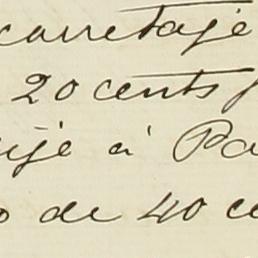 carretaje
20 cents
à Pa
de 40 ce